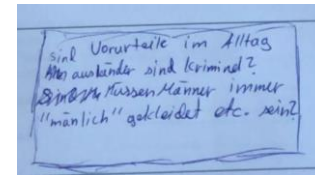 sind Vorurteile im Alltag
ausländer sind kriminel?
Müssen Männer immer
"mänlich" gekleidet etc. sein?